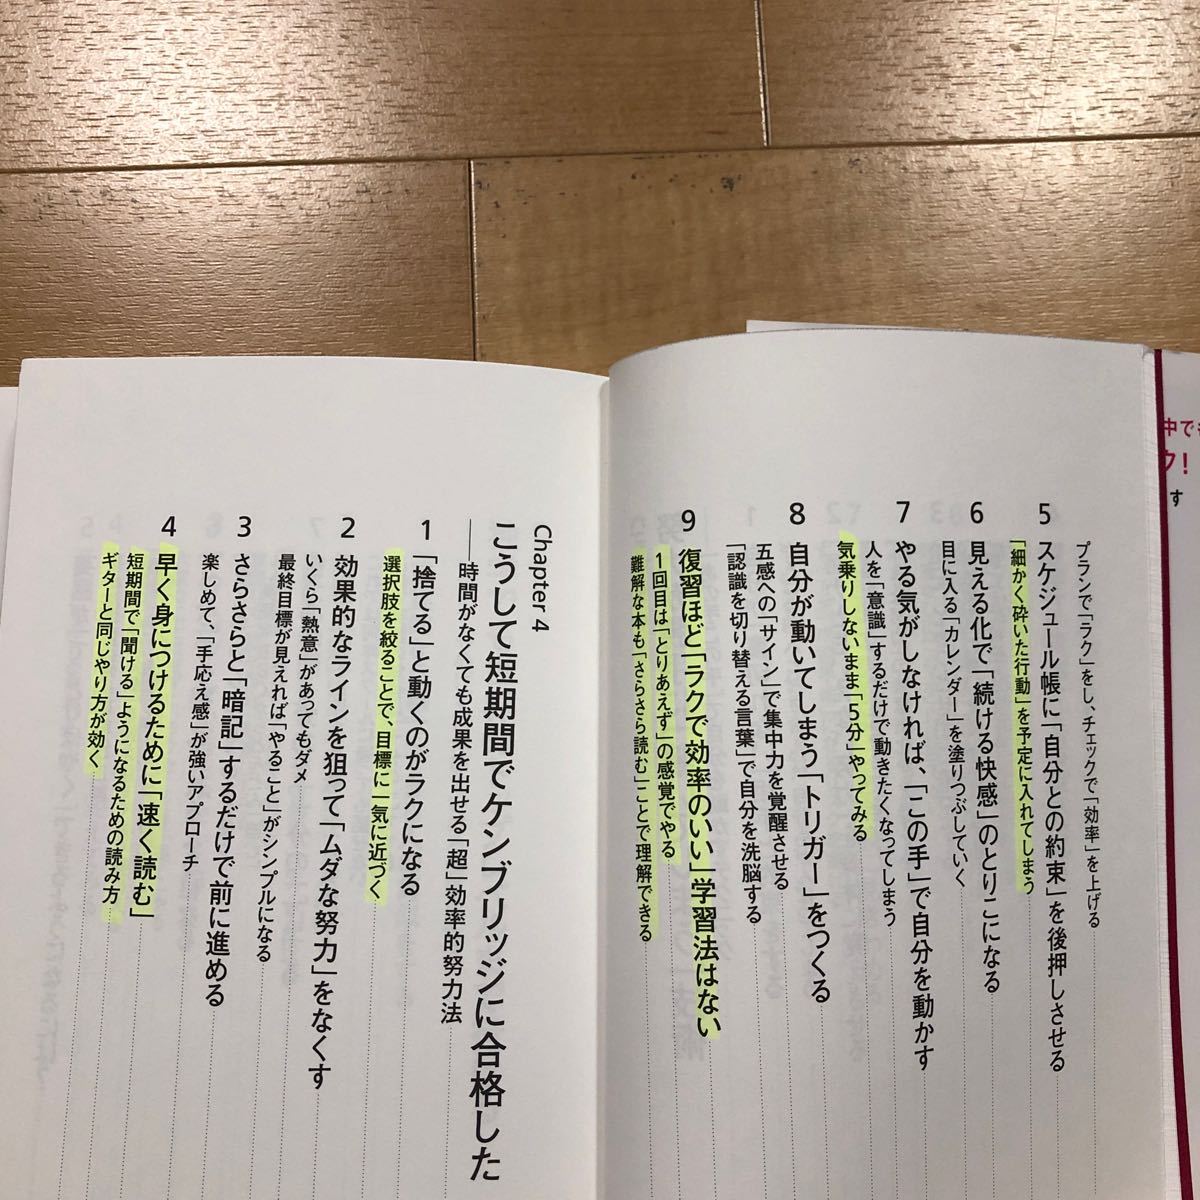 プランで「ラク」をし、チェックで「効率」を上げる
5 スケジュール帳に「自分との約束」を後押しさせる
「細かく砕いた行動」を予定に入れてしまう
6 見える化で「続ける快感」のとりこになる
目に入る「カレンダー」を塗りつぶしていく
7 やる気がしなければ、「この手」で自分を動かす
人を「意識」するだけで動きたくなってしまう
気乗りしないまま「5分」やってみる
8 自分が動いてしまう「トリガー」をつくる
五感への「サイン」で集中力を覚醒させる
「認識を切り替える言葉」で自分を洗脳する
9 復習ほど「ラクで効率のいい」学習法はない
1回目は「とりあえず」の感覚でやる
難解な本も「さらさら読む」ことで理解できる
Chapter 4
こうして短期間でケンブリッジに合格した
――時間がなくても成果を出せる「超」効率的努力法
1 「捨てる」と動くのがラクになる
選択肢を絞ることで、目標に一気に近づく
2 効果的なラインを狙って「ムダな努力」をなくす
いくら「熱意」があってもダメ
最終目標が見えれば「やること」がシンプルになる
3 さらさらと「暗記」するだけで前に進める
楽しめて、「手応え感」が強いアプローチ
4 早く身につけるために「速く読む」
短期間で「聞ける」ようになるための読み方
ギターと同じやり方が効く
中でも
ク!
す